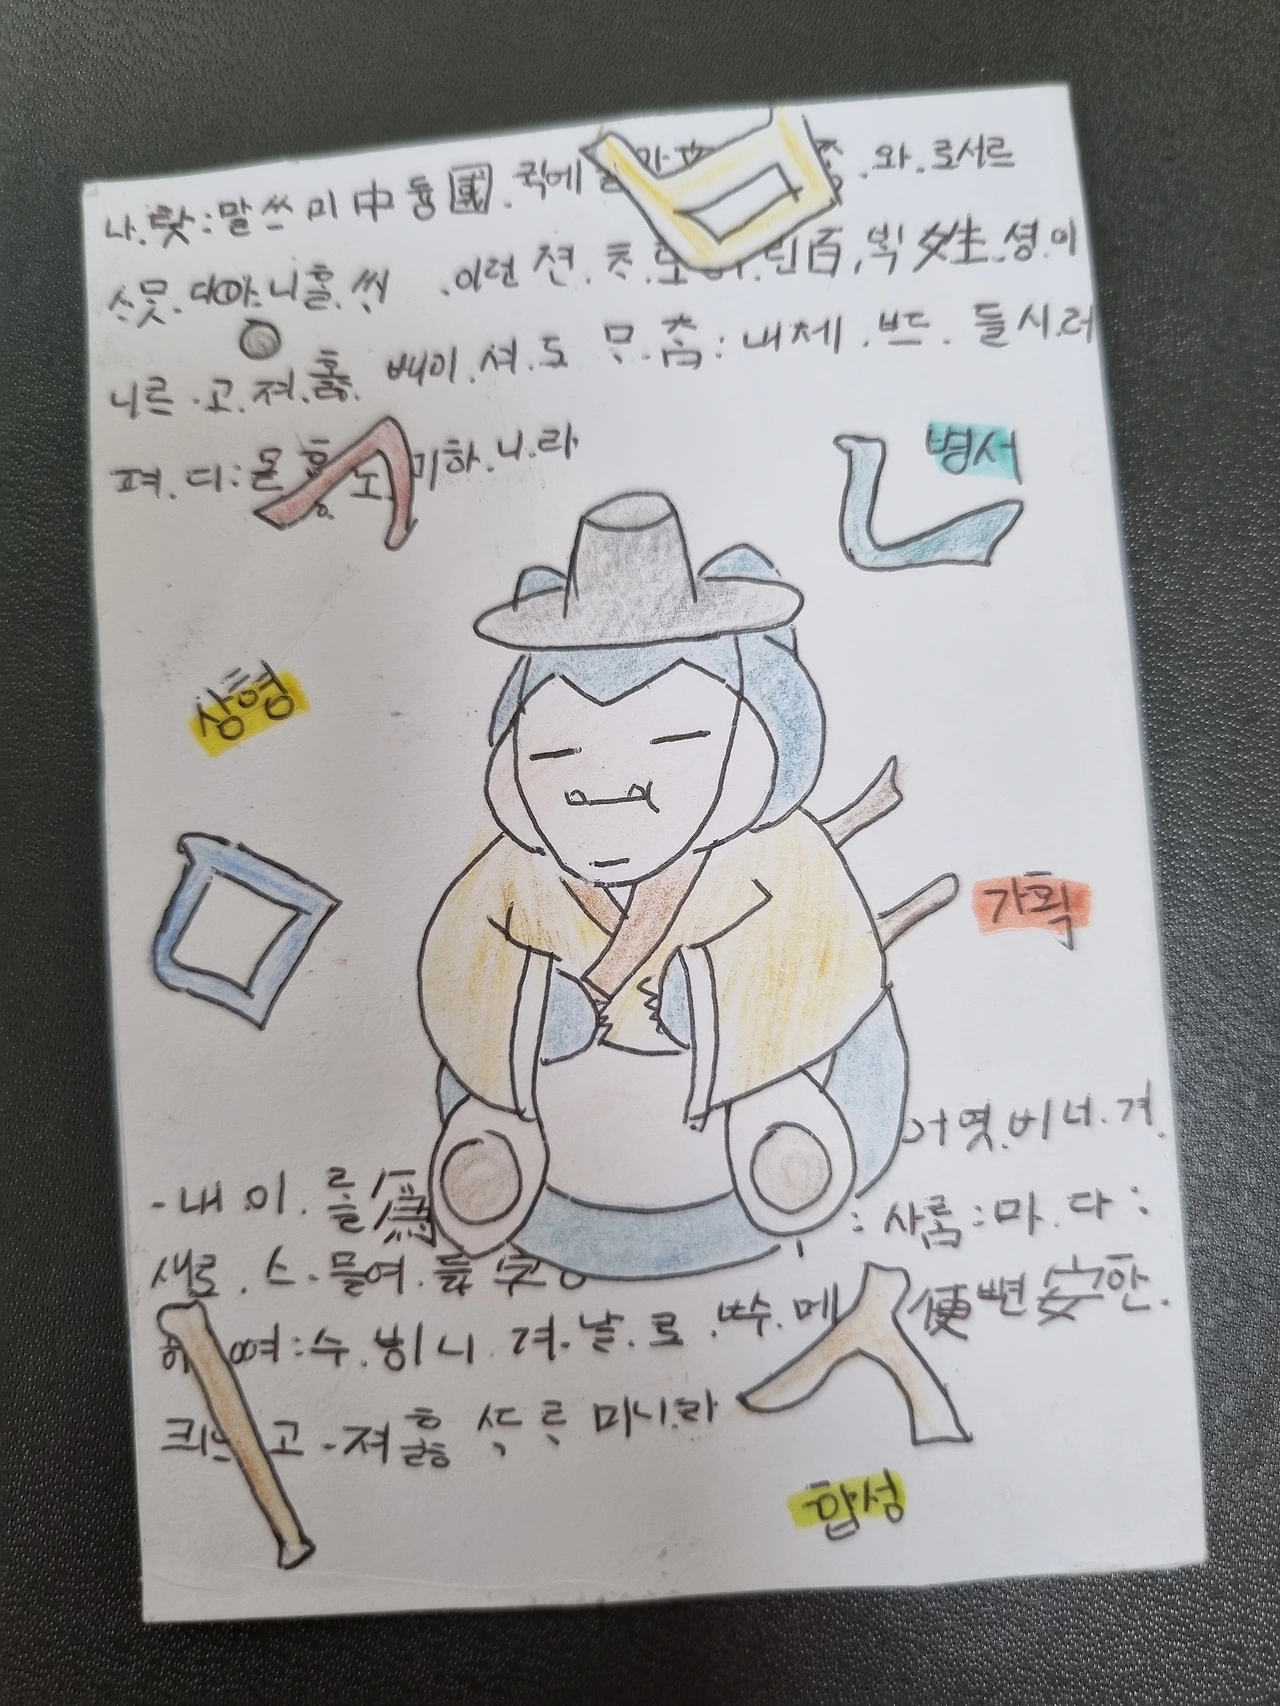 나.랏:말쓰미中듕國.귁에 와.로서르
스뭇.디아니홀.씩 .이런젼.츠.로 린百.빅姓.셩.이
니르.고.져.홇 배이.셔.도 ᄆᆞ.춤:내제.ᄠᅳᆮ.들시.러
펴.디:몯 노 기하.니.라
병서
상형
가획
어엿.비너.겨.
-내.이.를爲 :사룸:마.다:
새로.스.믈여.듧字
여:수.비니.겨.날.로.ᄡᅮ.메 便뼌安한.
고.져홇 ᄯᆞᄅᆞ미니.라
합성